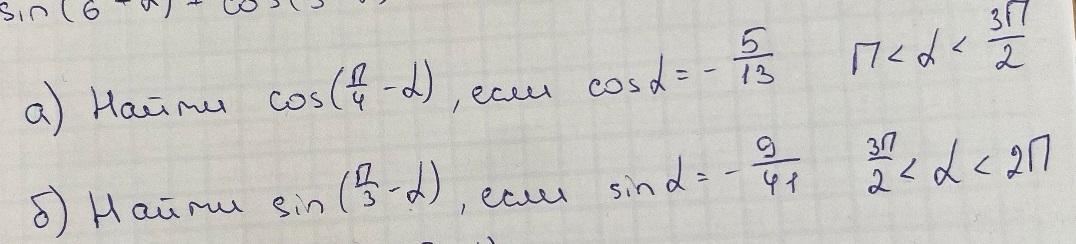 sin(6 - α) + cos(3
а) Найти cos(π/4 - α), если cosα = - 5/13 π < α < 3π/2
б) Найти sin(π/3 - α), если sinα = - 9/41 3π/2 < α < 2π